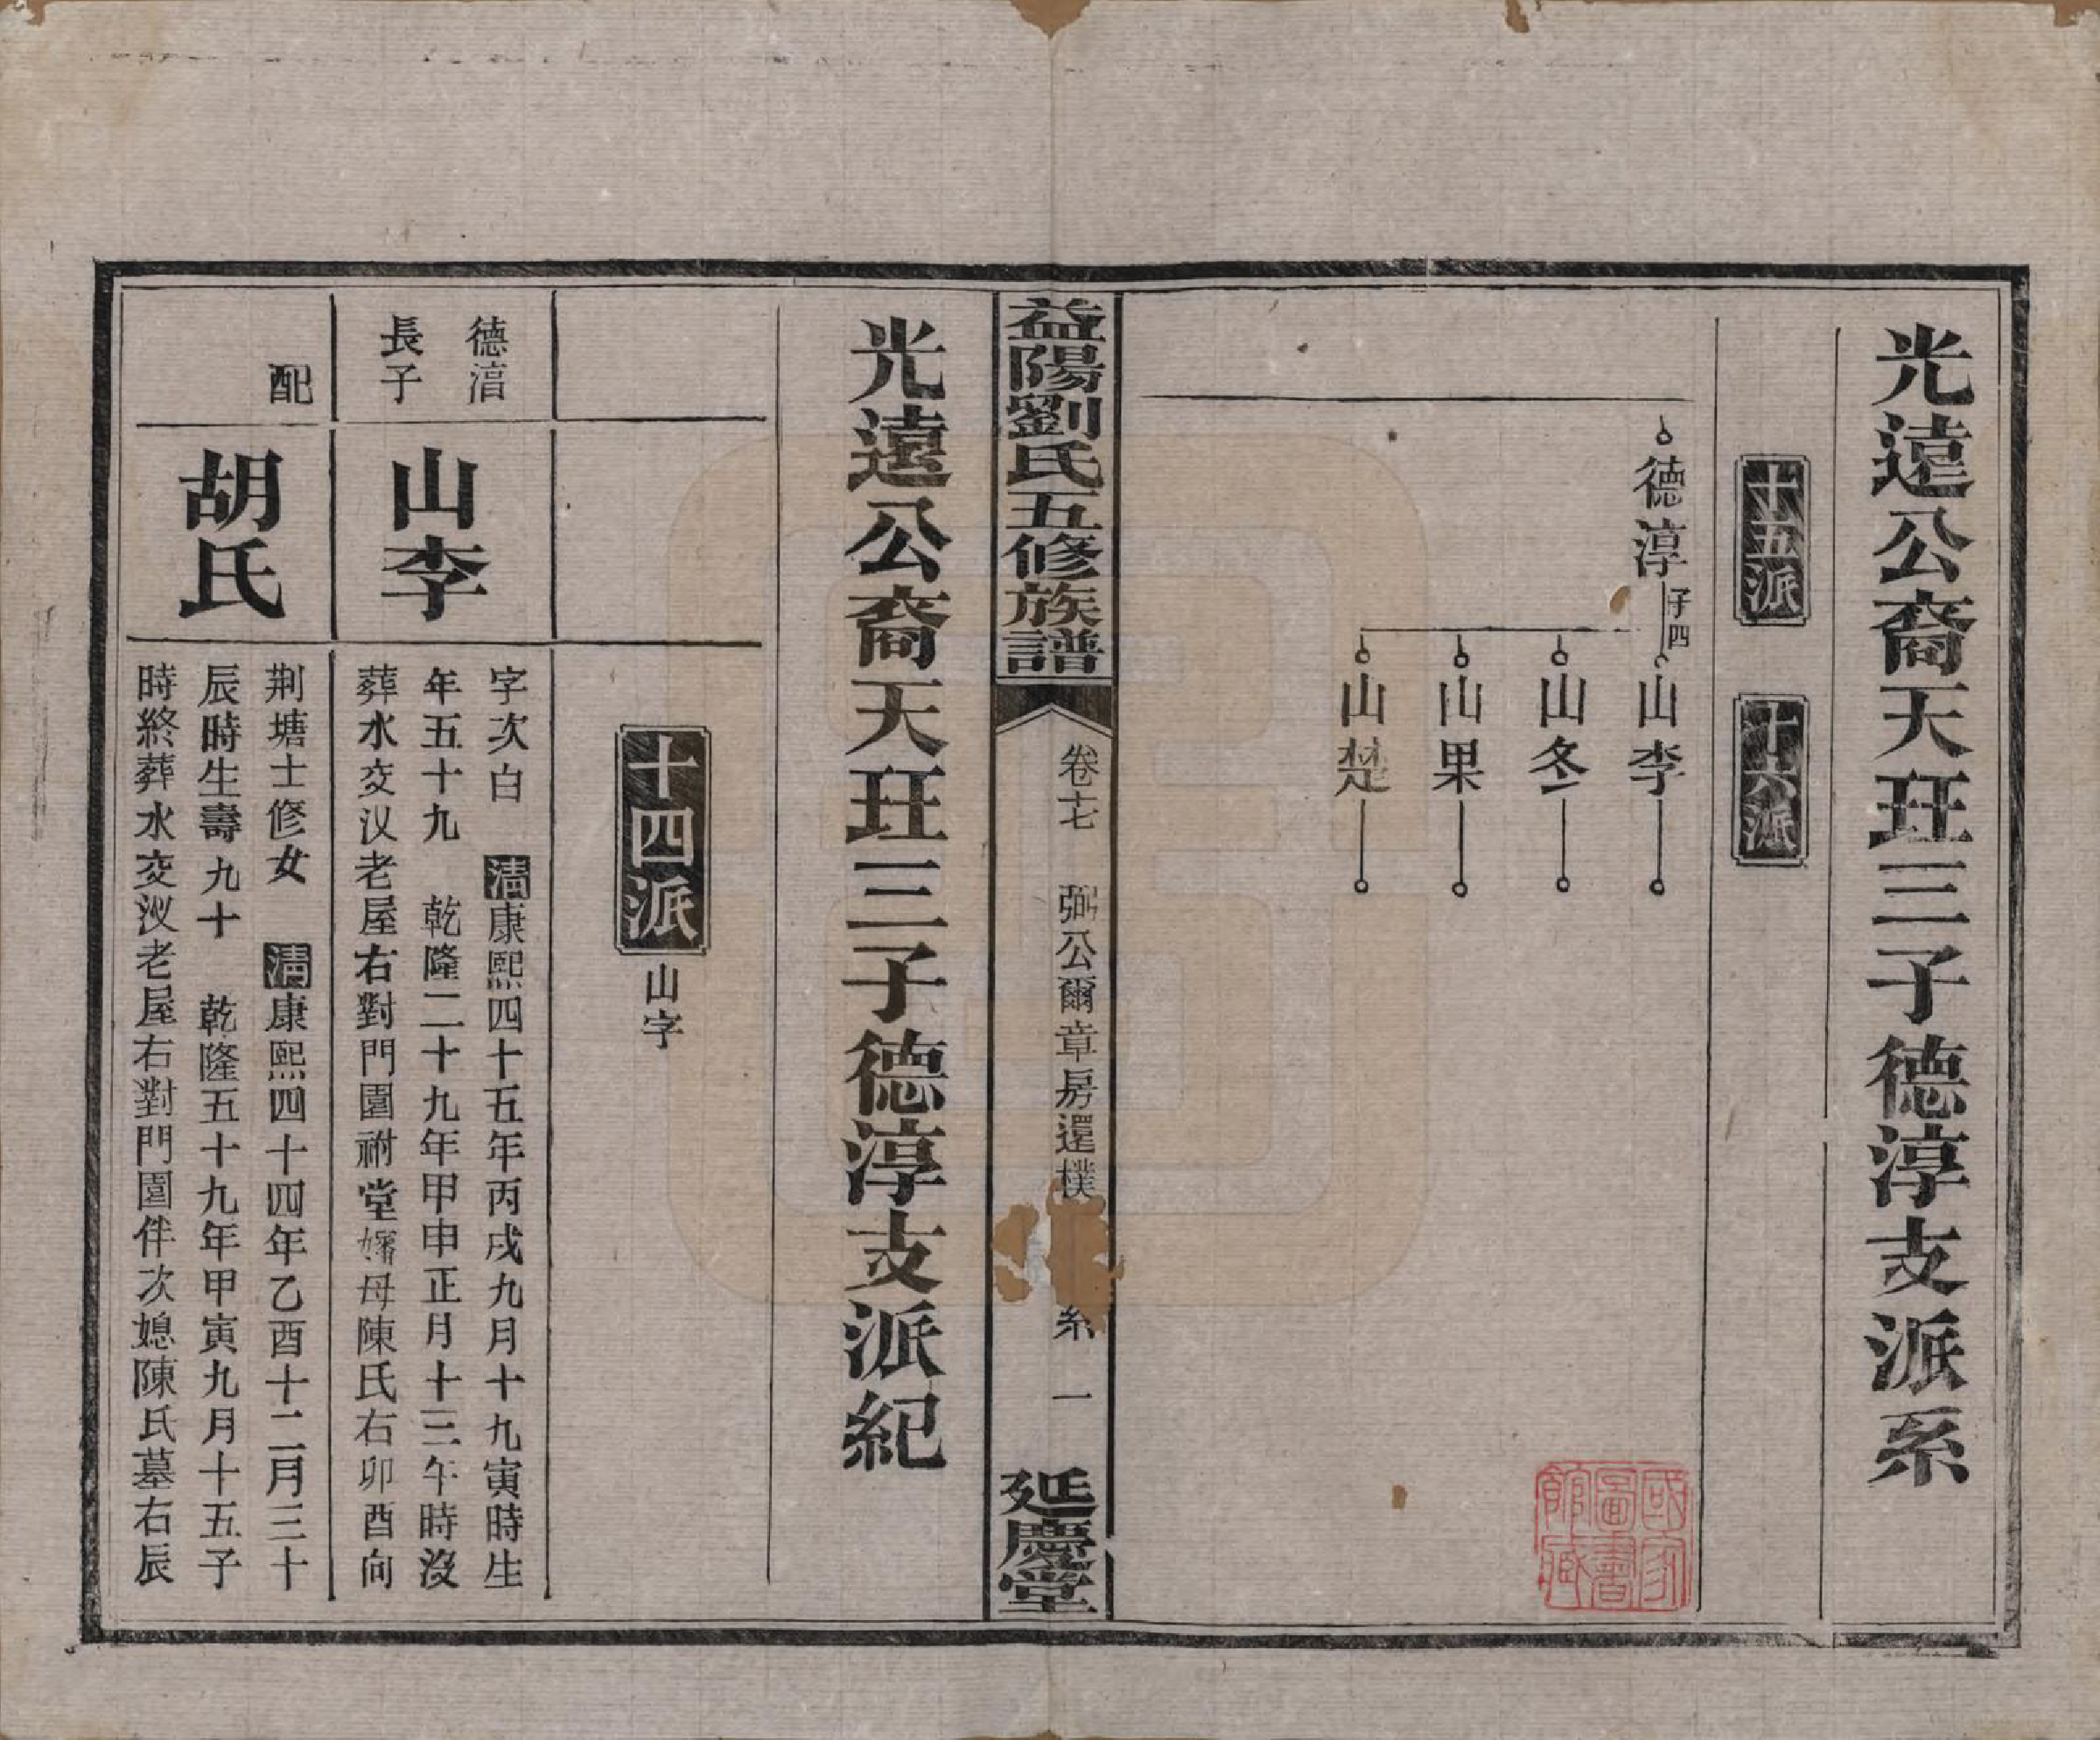 光遠公裔天玨三子德淳支派系
十五派　十六派
德淳 子四
山李
山冬
山果
山楚
益陽劉氏五修族譜
卷七　弼公爾章房還樸　系　一
延慶堂
光遠公裔天玨三子德淳支派紀
十四派 山字
德淳
長子
山李
字次白　清康熙四十五年丙戌九月十九寅時生
年五十九　乾隆二十九年甲申正月十三午時沒
葬水交汊老屋右對門園祔堂嬸母陳氏右卯酉向
配
胡氏
荆塘士修女　清康熙四十四年乙酉十二月三十
辰時生壽九十　乾隆五十九年甲寅九月十五子
時終葬水交汊老屋右對門園伴次媳陳氏墓右辰
國家圖書館藏